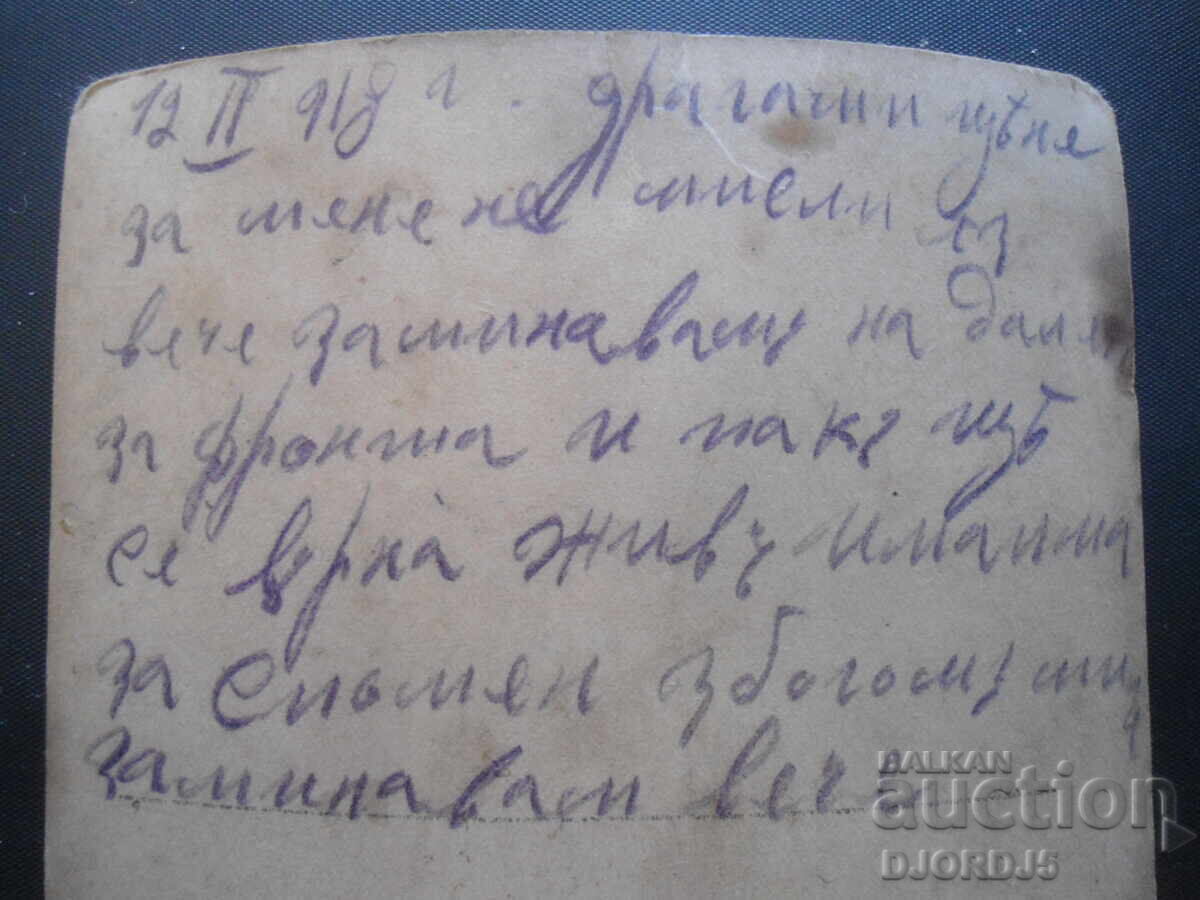 12 II 918 г. драгами цѣня
за мене не мисли яз
вече заминавамъ на дали
за фронта и пакъ щѣ
се врна живъ И ма има
за Спомен збогомъ ми
заминавам вече
BALKAN
auction
DJORDJ5